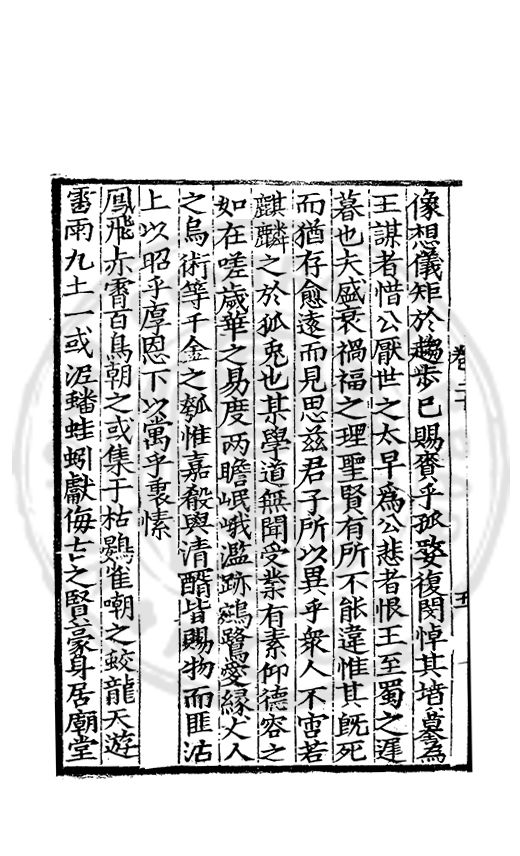 像想儀矩於趨步已賜賚乎孤嫠復閔悼其墳墓為
王謀者惜公厭世之太早為公悲者恨王至蜀之遲
暮也夫盛衰禍福之理聖賢有所不能違惟其旣死
而猶存愈遠而見思茲君子所以異乎衆人不啻若
麒麟之於狐兎也某學道無聞受業有素仰德容之
如在嗟歲華之易度兩瞻岷峨濫跡鵷鷺愛緣丈人
之烏術等千金之瓠惟嘉殽與清醑皆賜物而匪沽
上以昭乎厚恩下以寓乎裏愫
鳳飛赤霄百鳥朝之或集于枯鷃雀嘲之蛟龍天遊
雷雨九土一或泥蟠蛙蚓獻侮古之賢豪身居廟堂
卷二十
五